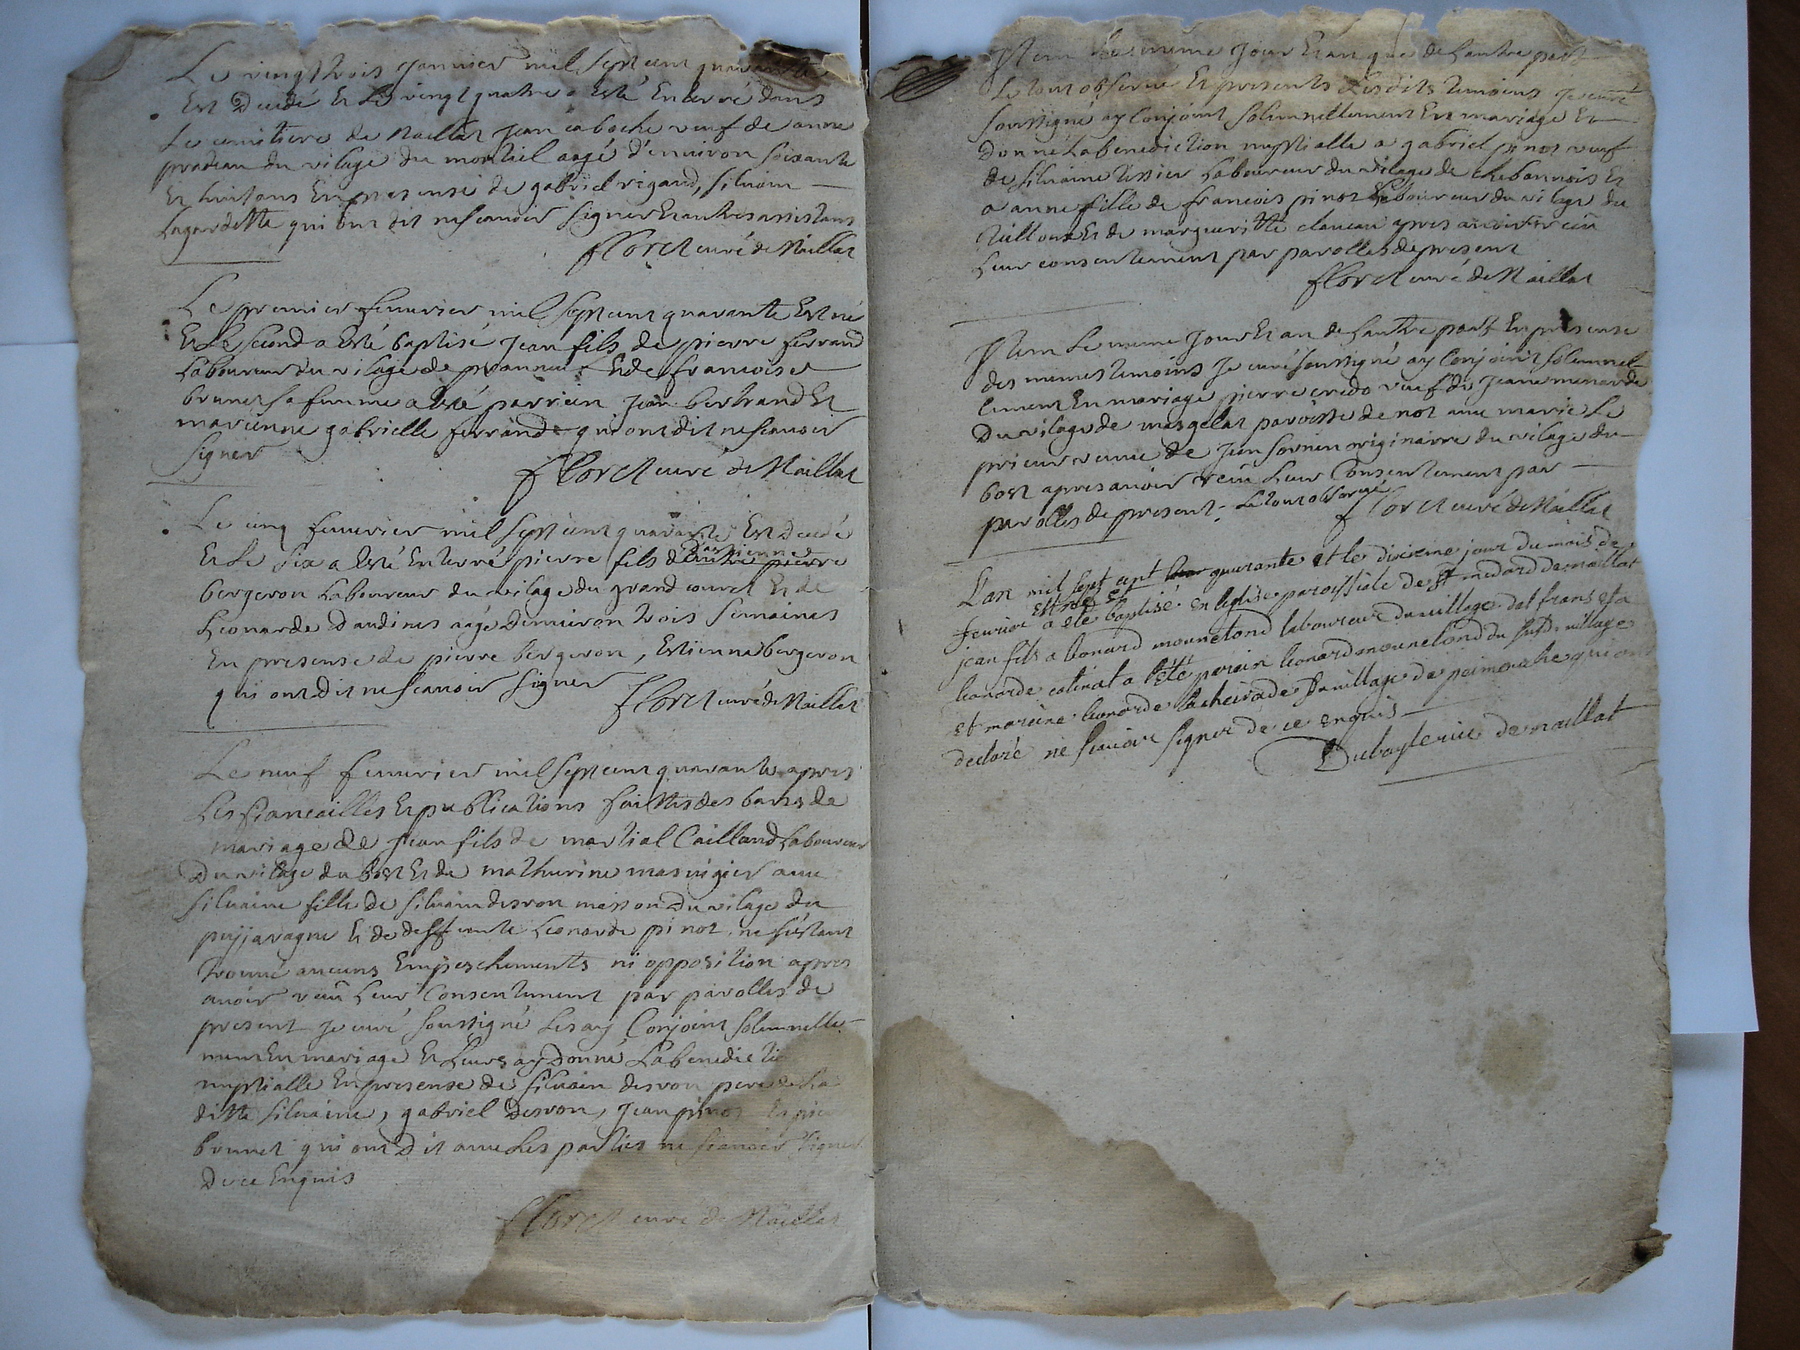 Le vingt trois Janvier mil sept cent quarante
Est Decedé Et Le vingt quatre a Esté Enterré dans
Le cemitiere de Naillat Jean caboche veuf de anne
pradeau du vilage du montiel aagé d'environ soixante
Et huit ans En presense de gabriel rigaud, silvain
Lagardette qui ont dit ne scavoir signer Et autres assistans
ffloret curé de Naillat
Le premier fevvrier mil sept cent quarante Est né
Et Le second a Esté baptisé Jean fils de pierre ferrand
Laboureur du vilage de Et de francoise
brunet sa femme a Esté parrien Jean bertrand Et
marienne gabrielle ferrande qui ont dit ne scavoir
signer
ffloret curé de Naillat
Le cinq fevvrier mil sept cent quarante Est Decedé
Et Le six a Esté Enterré pierre fils d'autre pierre
bergeron Laboureur du vilage du grand couret Et de
Leonarde daudines aagé Denviron trois semaines
En presense de pierre bergeron, Estienne bergeron
qui ont dit ne scavoir signer
ffloret curé de Naillat
Le neuf fevvrier mil sept cent quarante apres
Les fiancailles Et publications faittes des bans de
mariage de Jean fils de martial Caillaud Laboureur
Du vilage du bost Et de mathurine masvigier avec
silvaine fille de silvain desvou masson Du vilage du
puyjavagne Et de deffunte Leonarde pinot, ne s'estant
trouvé aucuns Empeschements ni opposition apres
avoir receu Leur Consentement par parolles de
present Je curé soussigné Les ay Conjoint solennelle-
ment En mariage Et Leurs ay Donné La benedictio
nuptialle En presense de silvain desvou pere de La
ditte silvaine, gabriel Desvou, Jean pinot Et
brunet qui ont Dit avec Les parties ne scavoir signer
De ce Enquis
ffloret curé de Naillat
Item Le meme Jour Et an que de L'autre part
Le tout observé Et presents Lesdits temoins Je curé
soussigné ay Conjoint solennellement En mariage Et
donné La benediction nuptialle a gabriel pinot veuf
de silvaine tixier Laboureur du vilage de chebannois Et
a anne fille de francois pinot Laboureur du vilage du
Et de margueritte claveau apres avoir receu
Leur consentement par parolles de present
ffloret curé de Naillat
Item Le meme Jour Et an de L'autre part En presense
des memes temoins Je curé soussigné ay Conjoint solennel-
lement En mariage pierre credo veuf de Jeane menarde
Du vilage de masgelat paroisse de not avec marie Le
prieur veuve de Jean fornien originairre du vilage du
bost apres avoir receu Leur Consentement par
parolles de present. Le tout observé
ffloret curé de Naillat
L'an mil sept cent quarante et le dixieme jour du mois de
est né et
fevrier a été baptisé en leglise paroissiale de St medard de naillat
jean fils a leonard mounetond laboureur du village dat frans et a
leonarde catinat a été parain leonard mounetond du susd. village
et maraine leonarde lacheirade du village de peimouche qui ont
declaré ne scavoir signer de ce enquis
Dubayle vic de naillat